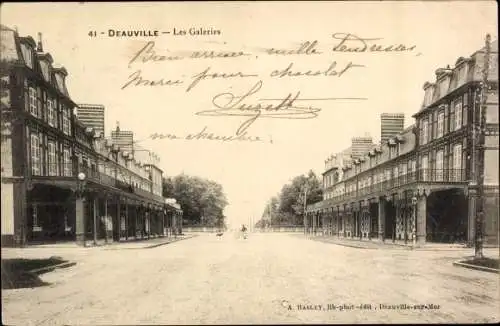 41 - DEAUVILLE — Les Galeries
Bien arrivée, mille tendresses
Merci pour chocolat
Suzette
ma chambre
A. HASLEY, lib-phot-édit, Deauville-sur-Mer